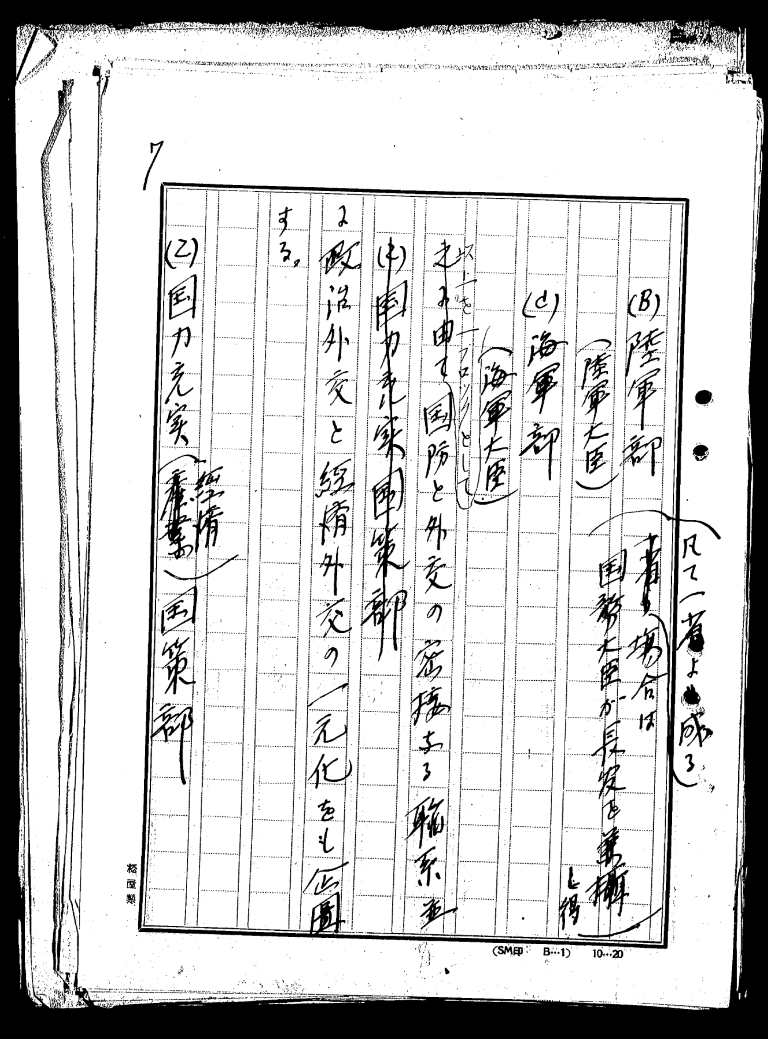 7
凡て一省より成る)
(B) 陸軍部
(陸軍大臣)
一省の場合は
国務大臣が長官を兼摂
し得
(C) 海軍部
(海軍大臣)
以上を一ブロックとして
之に由て国防と外交の密接なる聯系並
(1) 国力充実国策部
に政治外交と経済外交の一元化をも企図
する。
(2) 国力充実(産業)国策部
経済
(SM印 B…1) 10…20